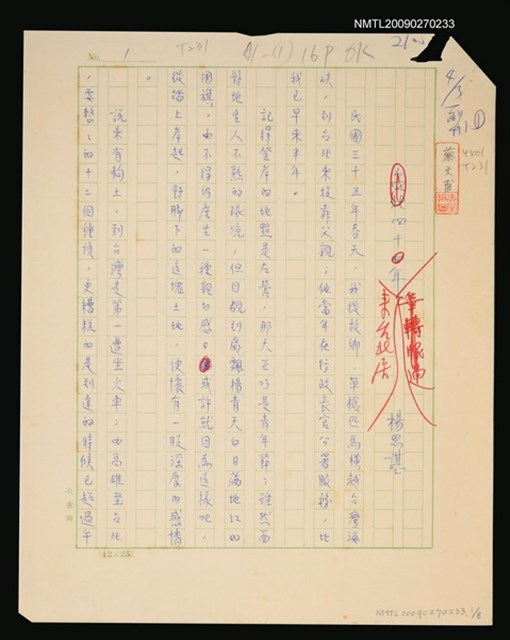 NMTL20090270233
No. 1
T231
A1-(1) 16P 8K
蔡文甫
T231
四十四年
筆轉帳過
東台北居
楊思諶
民國三十五年春天,我從故鄉單槍匹馬橫越台灣海
峽,到台北來投靠父親;他當年在行政長官公署服務,比
我已早來半年。
記得登岸的地點是左營,那天正巧是青年節;雖然面
對地生人不熟的環境,但目覩到處飄揚青天白日滿地紅的
國旗,由不得仍產生一種親切感。或許就因為這緣故吧,
從踏上岸起,對腳下的這塊土地,便懷有一股深厚的感情
。
說來有夠土,到台灣是第一遭坐火車;由高雄至台北
,要整整的十二個鐘頭,更糟糕的是到達的時候已超過午
(12×25)
NMTL20090270233 1/8